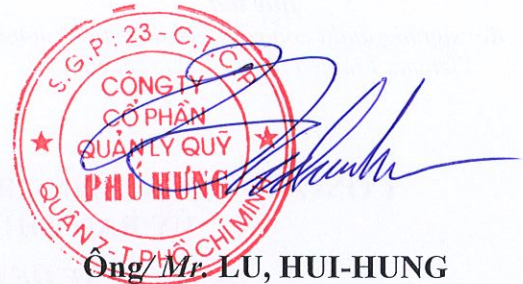 S.G.P: 23 - C.T.C.P
CÔNG TY
CỔ PHẦN
QUẢN LÝ QUỸ
PHÚ HƯNG
QUẬN 7 - T.PHỐ CHÍ MINH
Ông/ Mr. LU, HUI-HUNG